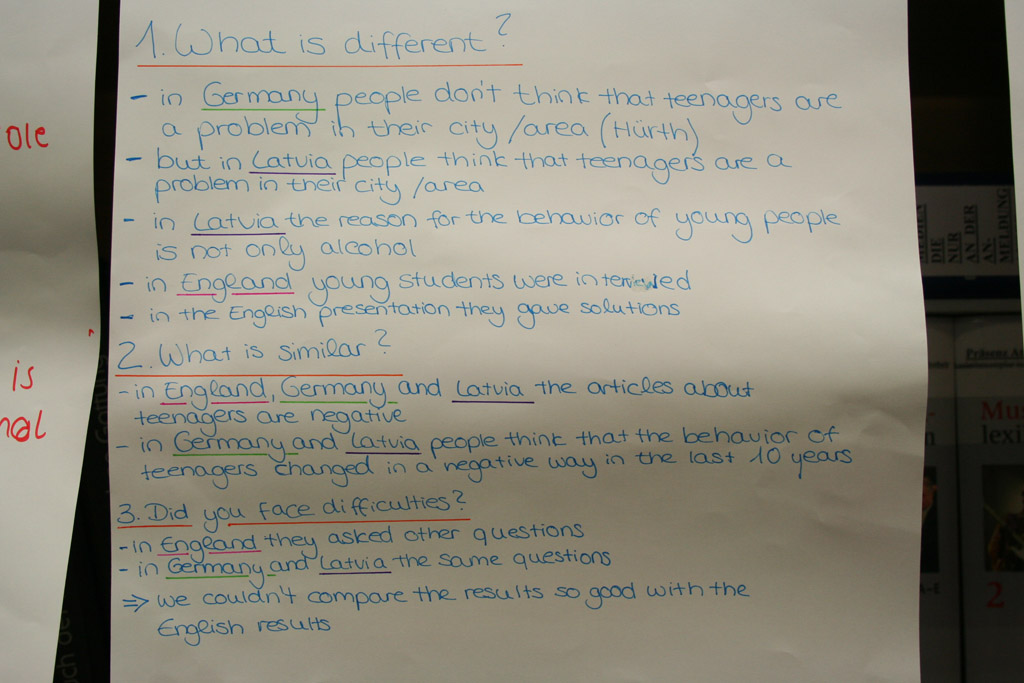 1. What is different?
- in Germany people don't think that teenagers are
a problem in their city /area (Hürth)
- but in Latvia people think that teenagers are a
problem in their city /area
- in Latvia the reason for the behavior of young people
is not only alcohol
- in England young students were interviewed
- in the English presentation they gave solutions
2. What is similar?
- in England, Germany and Latvia the articles about
teenagers are negative
- in Germany and Latvia people think that the behavior of
teenagers changed in a negative way in the last 10 years
3. Did you face difficulties?
- in England they asked other questions
- in Germany and Latvia the same questions
⇒ we couldn't compare the results so good with the
English results
ole
is
DIE
NUR
AN DER
AN-
MELDUNG
Mus
lexi
2